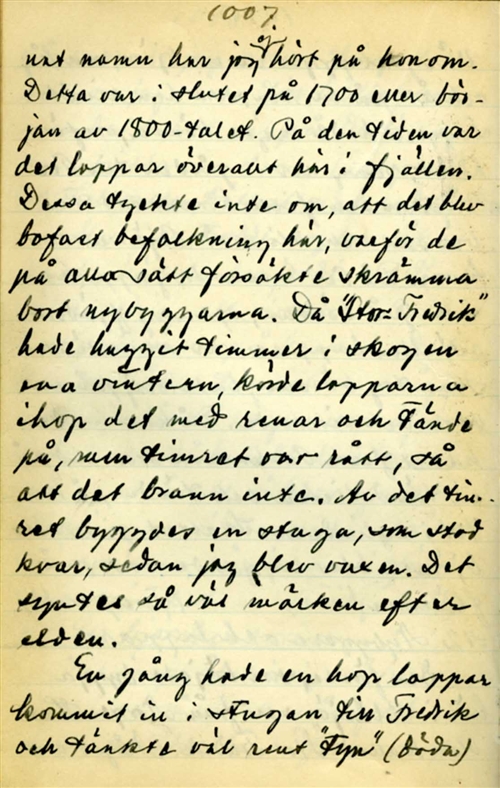 1007
nat namn har jag ej hört på honom.
Detta var i slutet på 1700 eller bör-
jan av 1800-talet. På den tiden var
det lappar överallt här i fjällen.
Dessa tyckte inte om, att det blev
bofast befolkning här, varför de
på alla sätt försökte skrämma
bort nybyggarna. Då "Stor-Fredrik"
hade huggit timmer i skogen
ena vintern, körde lapparna
ihop det med renar och tände
på, men timret var rått, så
att det brann inte. Av det tim-
ret byggdes en stuga, som stod
kvar, sedan jag blev vuxen. Det
syntes så väl märken efter
elden.
En gång hade en hop lappar
kommit in i stugan till Fredrik
och tänkte väl rent "typ" (döda)